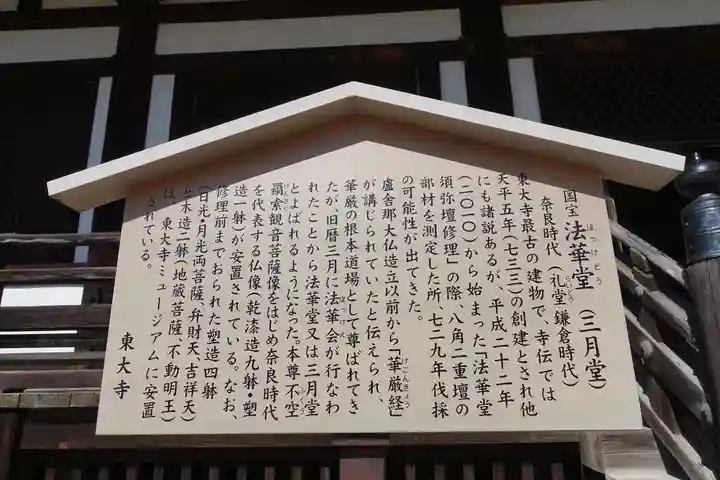 国宝 法華堂（三月堂）
ほっけどう
奈良時代（礼堂、鎌倉時代）
らいどう
東大寺最古の建物で、寺伝では
天平五年（七三三）の創建とされ他
にも諸説あるが、平成二十二年
（二〇一〇）から始まった「法華堂
須弥壇修理」の際、八角二重壇の
部材を測定した所、七二九年伐採
の可能性が出てきた。
盧舎那大仏造立以前から「華厳経」
けごんきょう
が講じられていたと伝えられ、
華厳の根本道場として尊ばれてき
たが、旧暦三月に法華会が行なわ
ほっけえ
れたことから法華堂又は三月堂
とよばれるようになった。本尊不空
ふくう
羂索観音菩薩像をはじめ奈良時代
けんさく
を代表する仏像（乾漆造九躰・塑
造一躰）が安置されている。なお、
修理前までおられた塑造四躰
（日光・月光両菩薩、弁財天、吉祥天）
と木造二躰（地蔵菩薩、不動明王）
は、東大寺ミュージアムに安置
されている。
東大寺